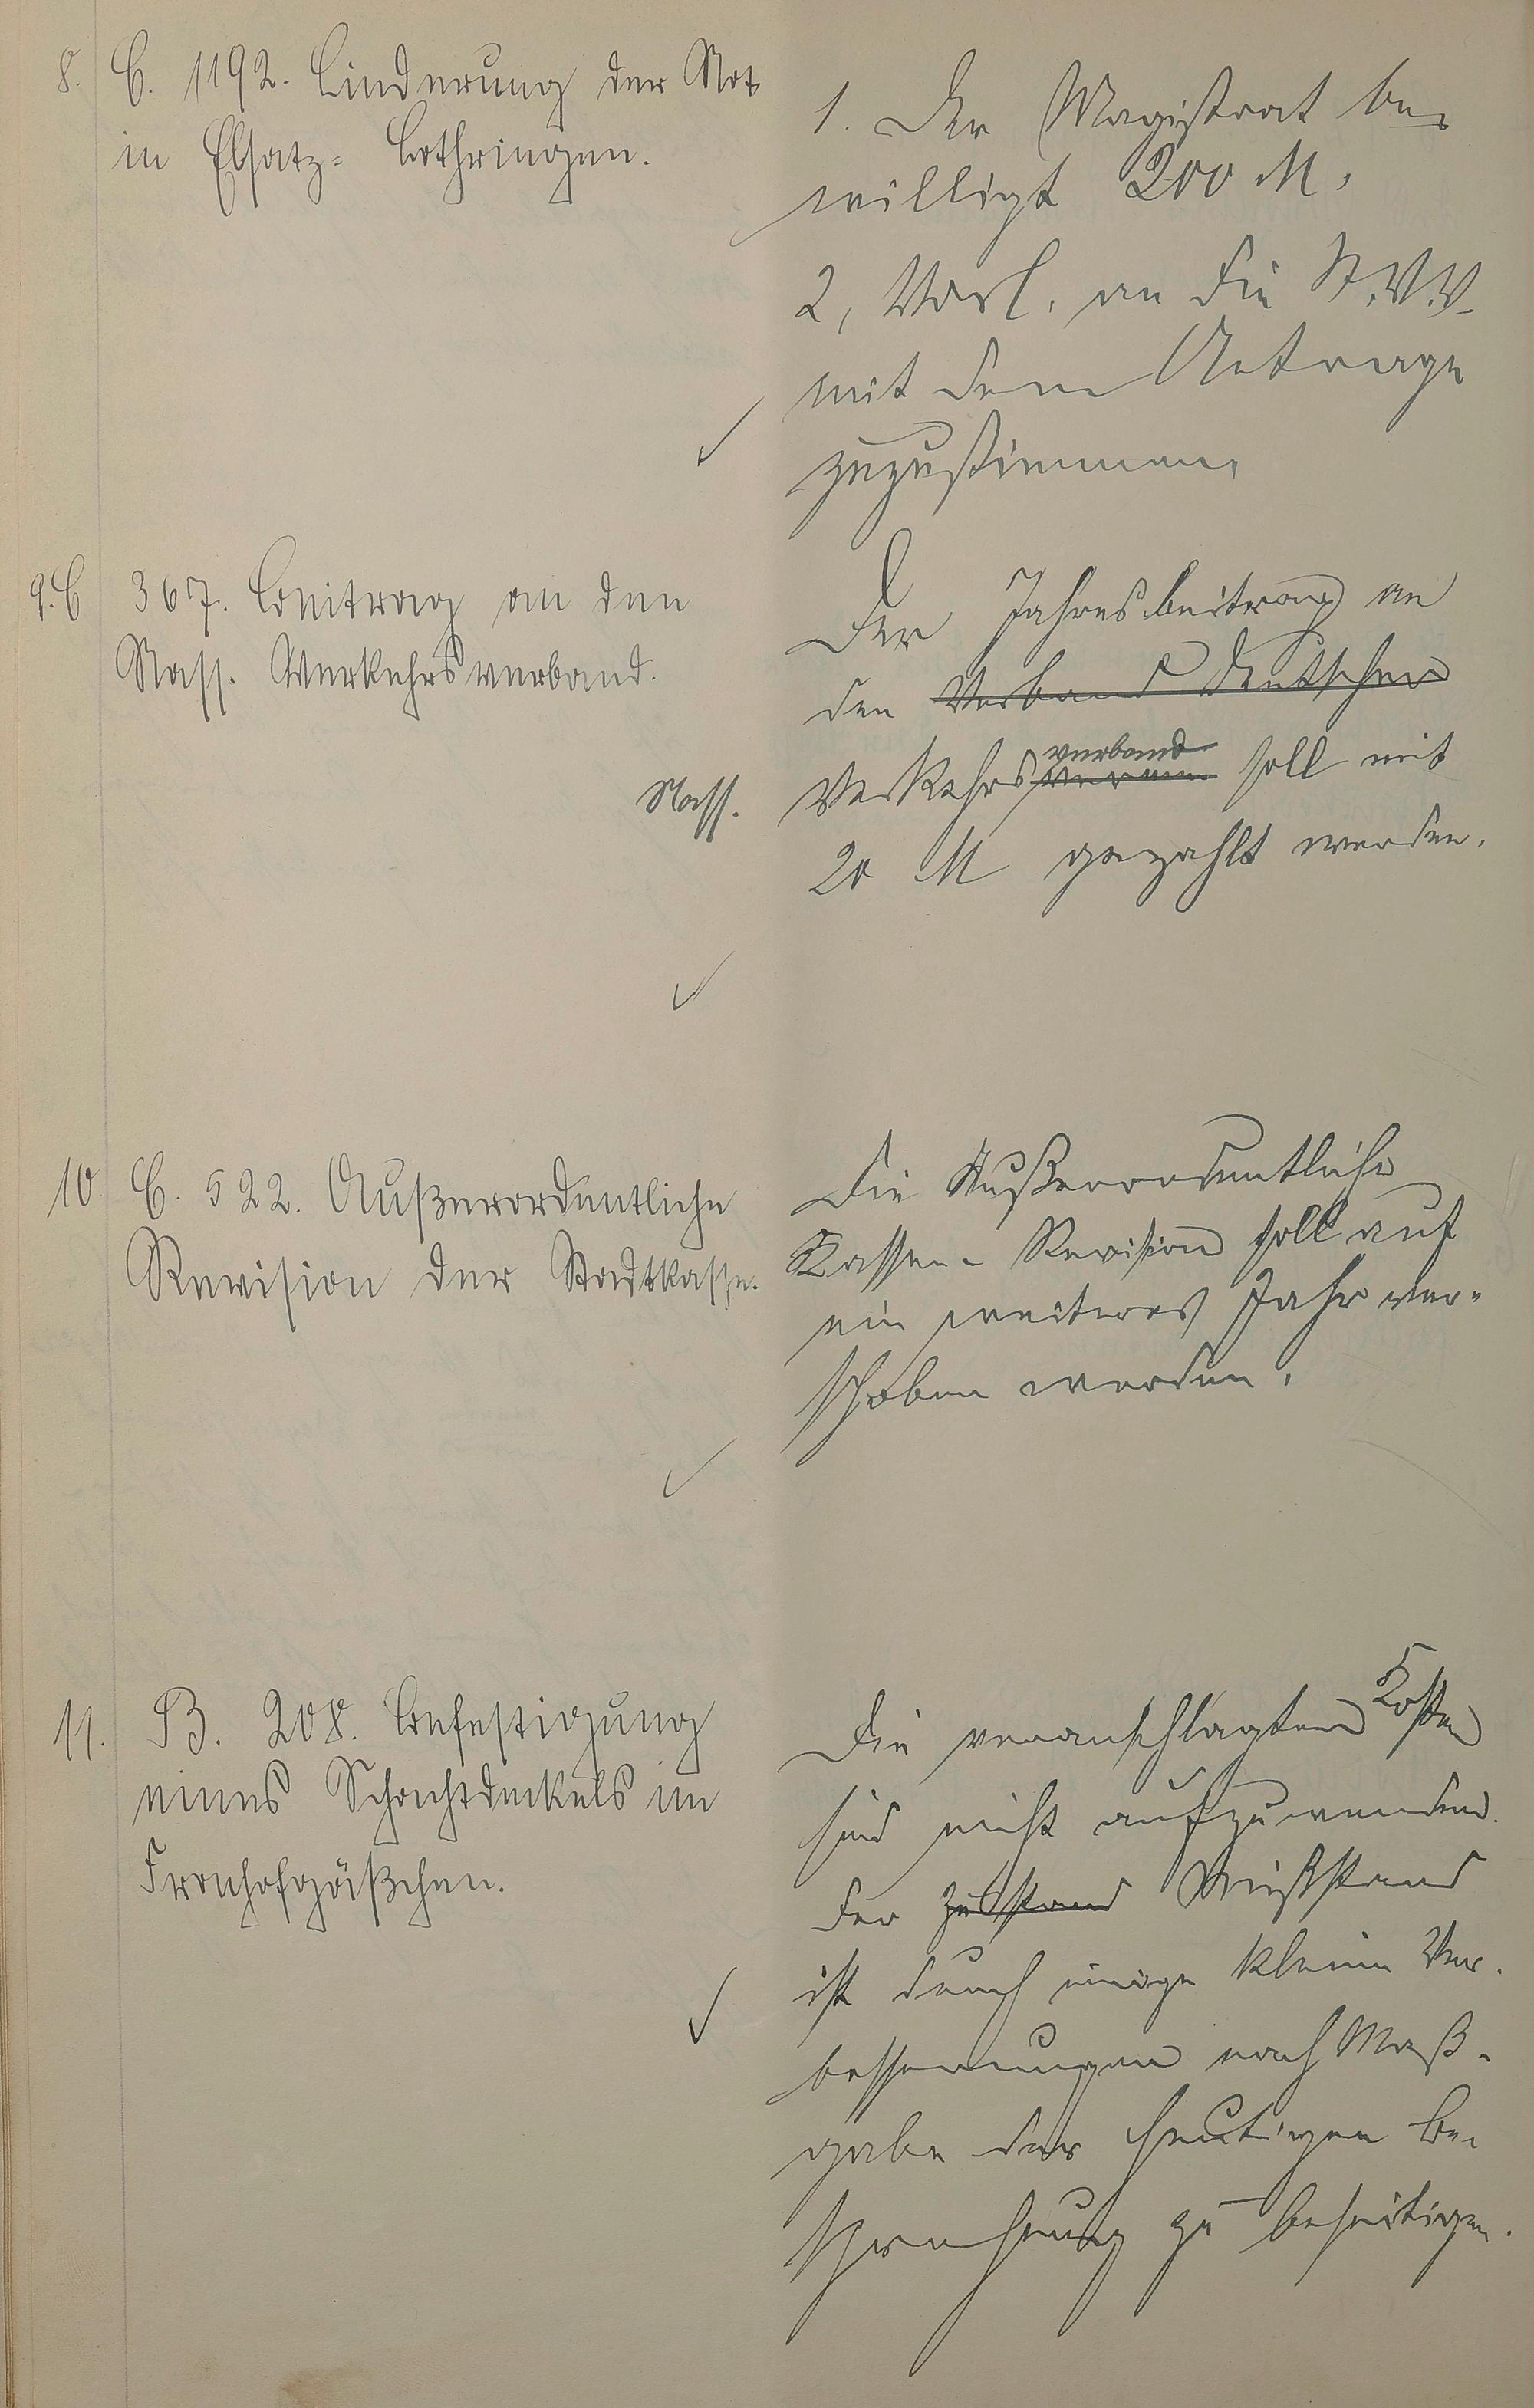 8. C. 1192. Linderung der Not
in Elsatz-Lothringen.
1. Der Magistrat be-
willigt 200 M.
2, Vorl. an die St.V.V.
mit dem Antrage
zuzustimmen.
9. C 367. Beitrag an den
Nass. Verkehrsverband.
Der Jahresbeitrag an
den Verband Deutscher
verband
Nass. Verkehrsverein soll mit
20 M gezahlt werden.
10. C. 522. Außerordentliche
Revision der Stadtkasse.
Die Außerordentliche
Kassen-Revision soll auf
ein weiteres Jahr ver-
schoben werden.
11. B. 208. Befestigung
eines Schachtdeckels im
Fronhofgäßchen.
Die veranschlagten Kosten
sind nicht aufzuwenden.
Der Zustand Mißstand
ist durch einige kleine Ver-
besserungen nach Maß-
gabe der heutigen Be-
sprechung zu beseitigen.